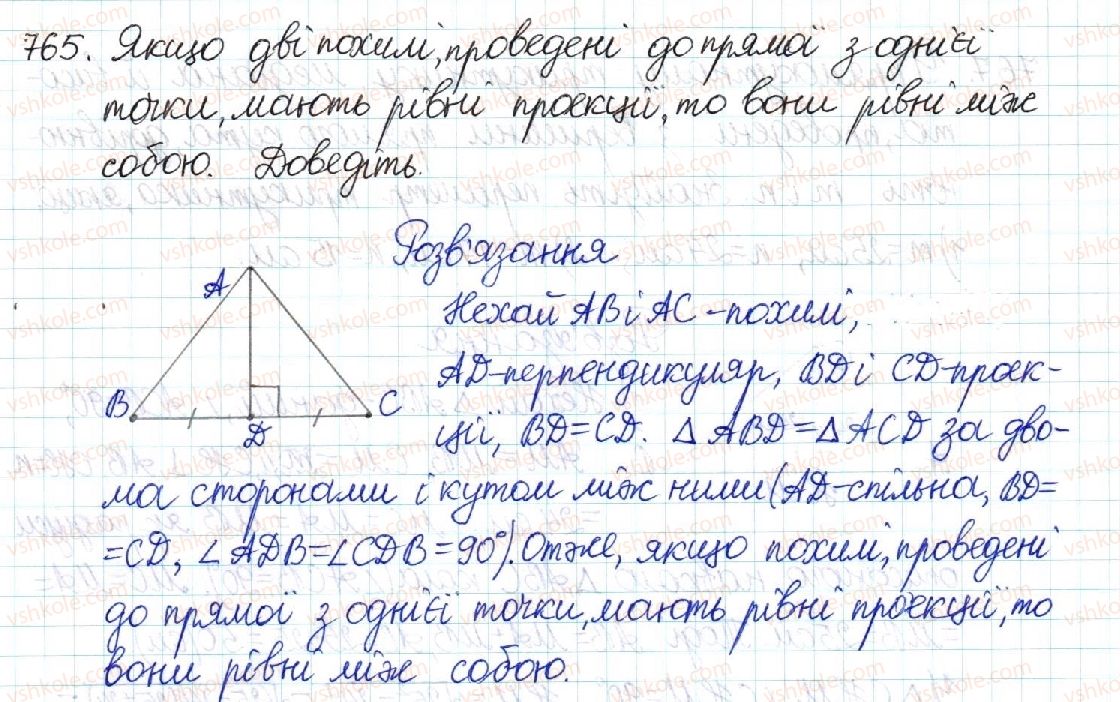 765. Якщо дві похилі, проведені до прямої з однієї
точки, мають рівні проєкції, то вони рівні між
собою. Доведіть.
Розв'язання
A
B
D
C
Нехай AB і AC - похилі,
AD-перпендикуляр, BD і CD-проєк-
ції, BD = CD. △ ABD = △ ACD за дво-
ма сторонами і кутом між ними (AD-спільна, BD =
= CD, ∠ ADB = ∠ CDB = 90°). Отже, якщо похилі, проведені
до прямої з однієї точки, мають рівні проєкції, то
вони рівні між собою.